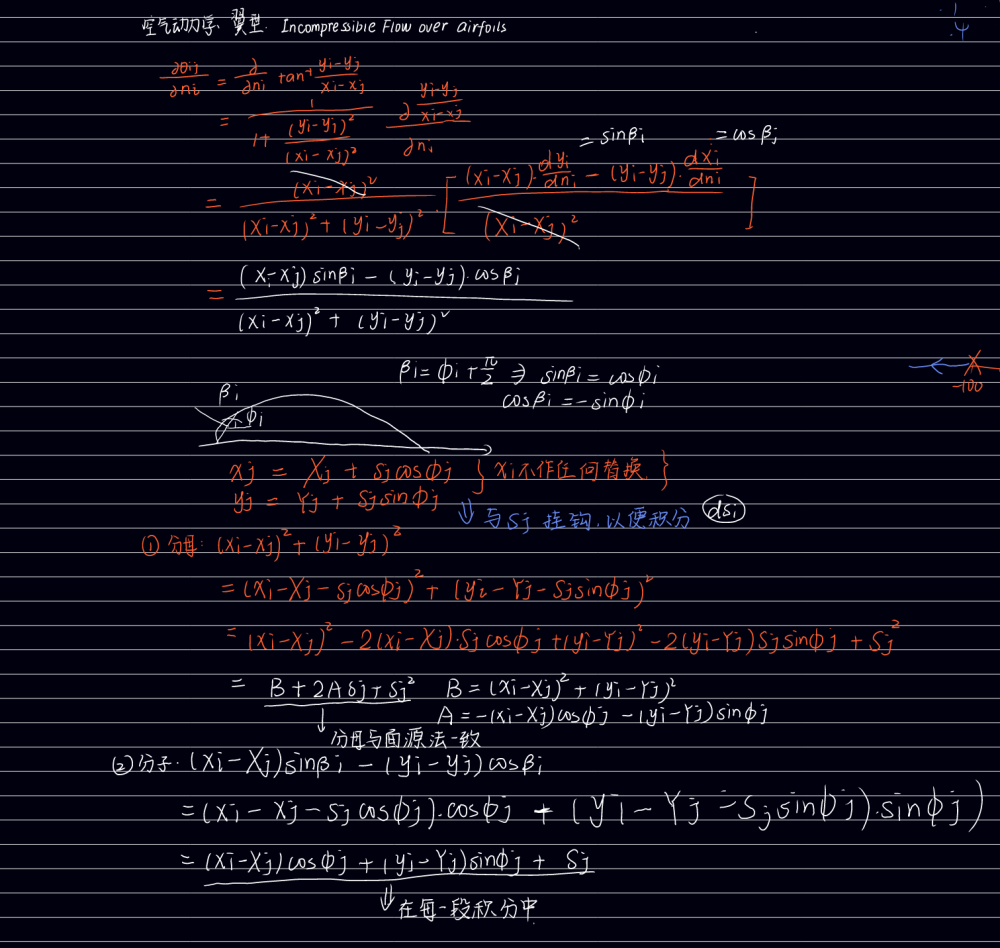 空气动力学. 翼型. Incompressible Flow over airfoils
1
4
∂θij/∂ni = ∂/∂ni tan⁻¹ (yi-yj)/(xi-xj)
= 1/(1+(yi-yj)²/(xi-xj)²) ∂((yi-yj)/(xi-xj))/∂ni
= sinβi = cosβj
= (xi-xj)²/((xi-xj)²+(yi-yj)²) · [((xi-xj)·dyi/dni - (yi-yj)·dxi/dni)/(xi-xj)²]
= ((xi-xj)sinβi - (yi-yj)·cosβi)/((xi-xj)² + (yi-yj)²)
βi = ϕi + π/2 ⇒ sinβi = cosϕi
cosβi = -sinϕi
-100
βi
ϕi
xj = Xj + Sjcosϕj } xi不作任何替换 }
yj = Yj + Sjsinϕj
⇓ 与Sj 挂钩, 以便积分 dsi
① 分母: (xi-xj)²+(yi-yj)²
= (xi-Xj-Sjcosϕj)² + (yi-Yj-Sjsinϕj)²
= (xi-Xj)² - 2(xi-Xj)·Sjcosϕj + (yi-Yj)² - 2(yi-Yj)Sjsinϕj + Sj²
= B + 2ASj + Sj² B = (xi-Xj)² + (yi-Yj)²
A = -(xi-Xj)cosϕj - (yi-Yj)sinϕj
↓ 分母与面源法一致
② 分子: (xi-Xj)sinβi - (yi-yj)cosβi
= (xi-xj-Sjcosϕj)·cosϕj + (yi-Yj-Sjsinϕj)·sinϕj)
= (xi-Xj)cosϕj + (yi-Yj)sinϕj + Sj
⇓ 在每一段积分中